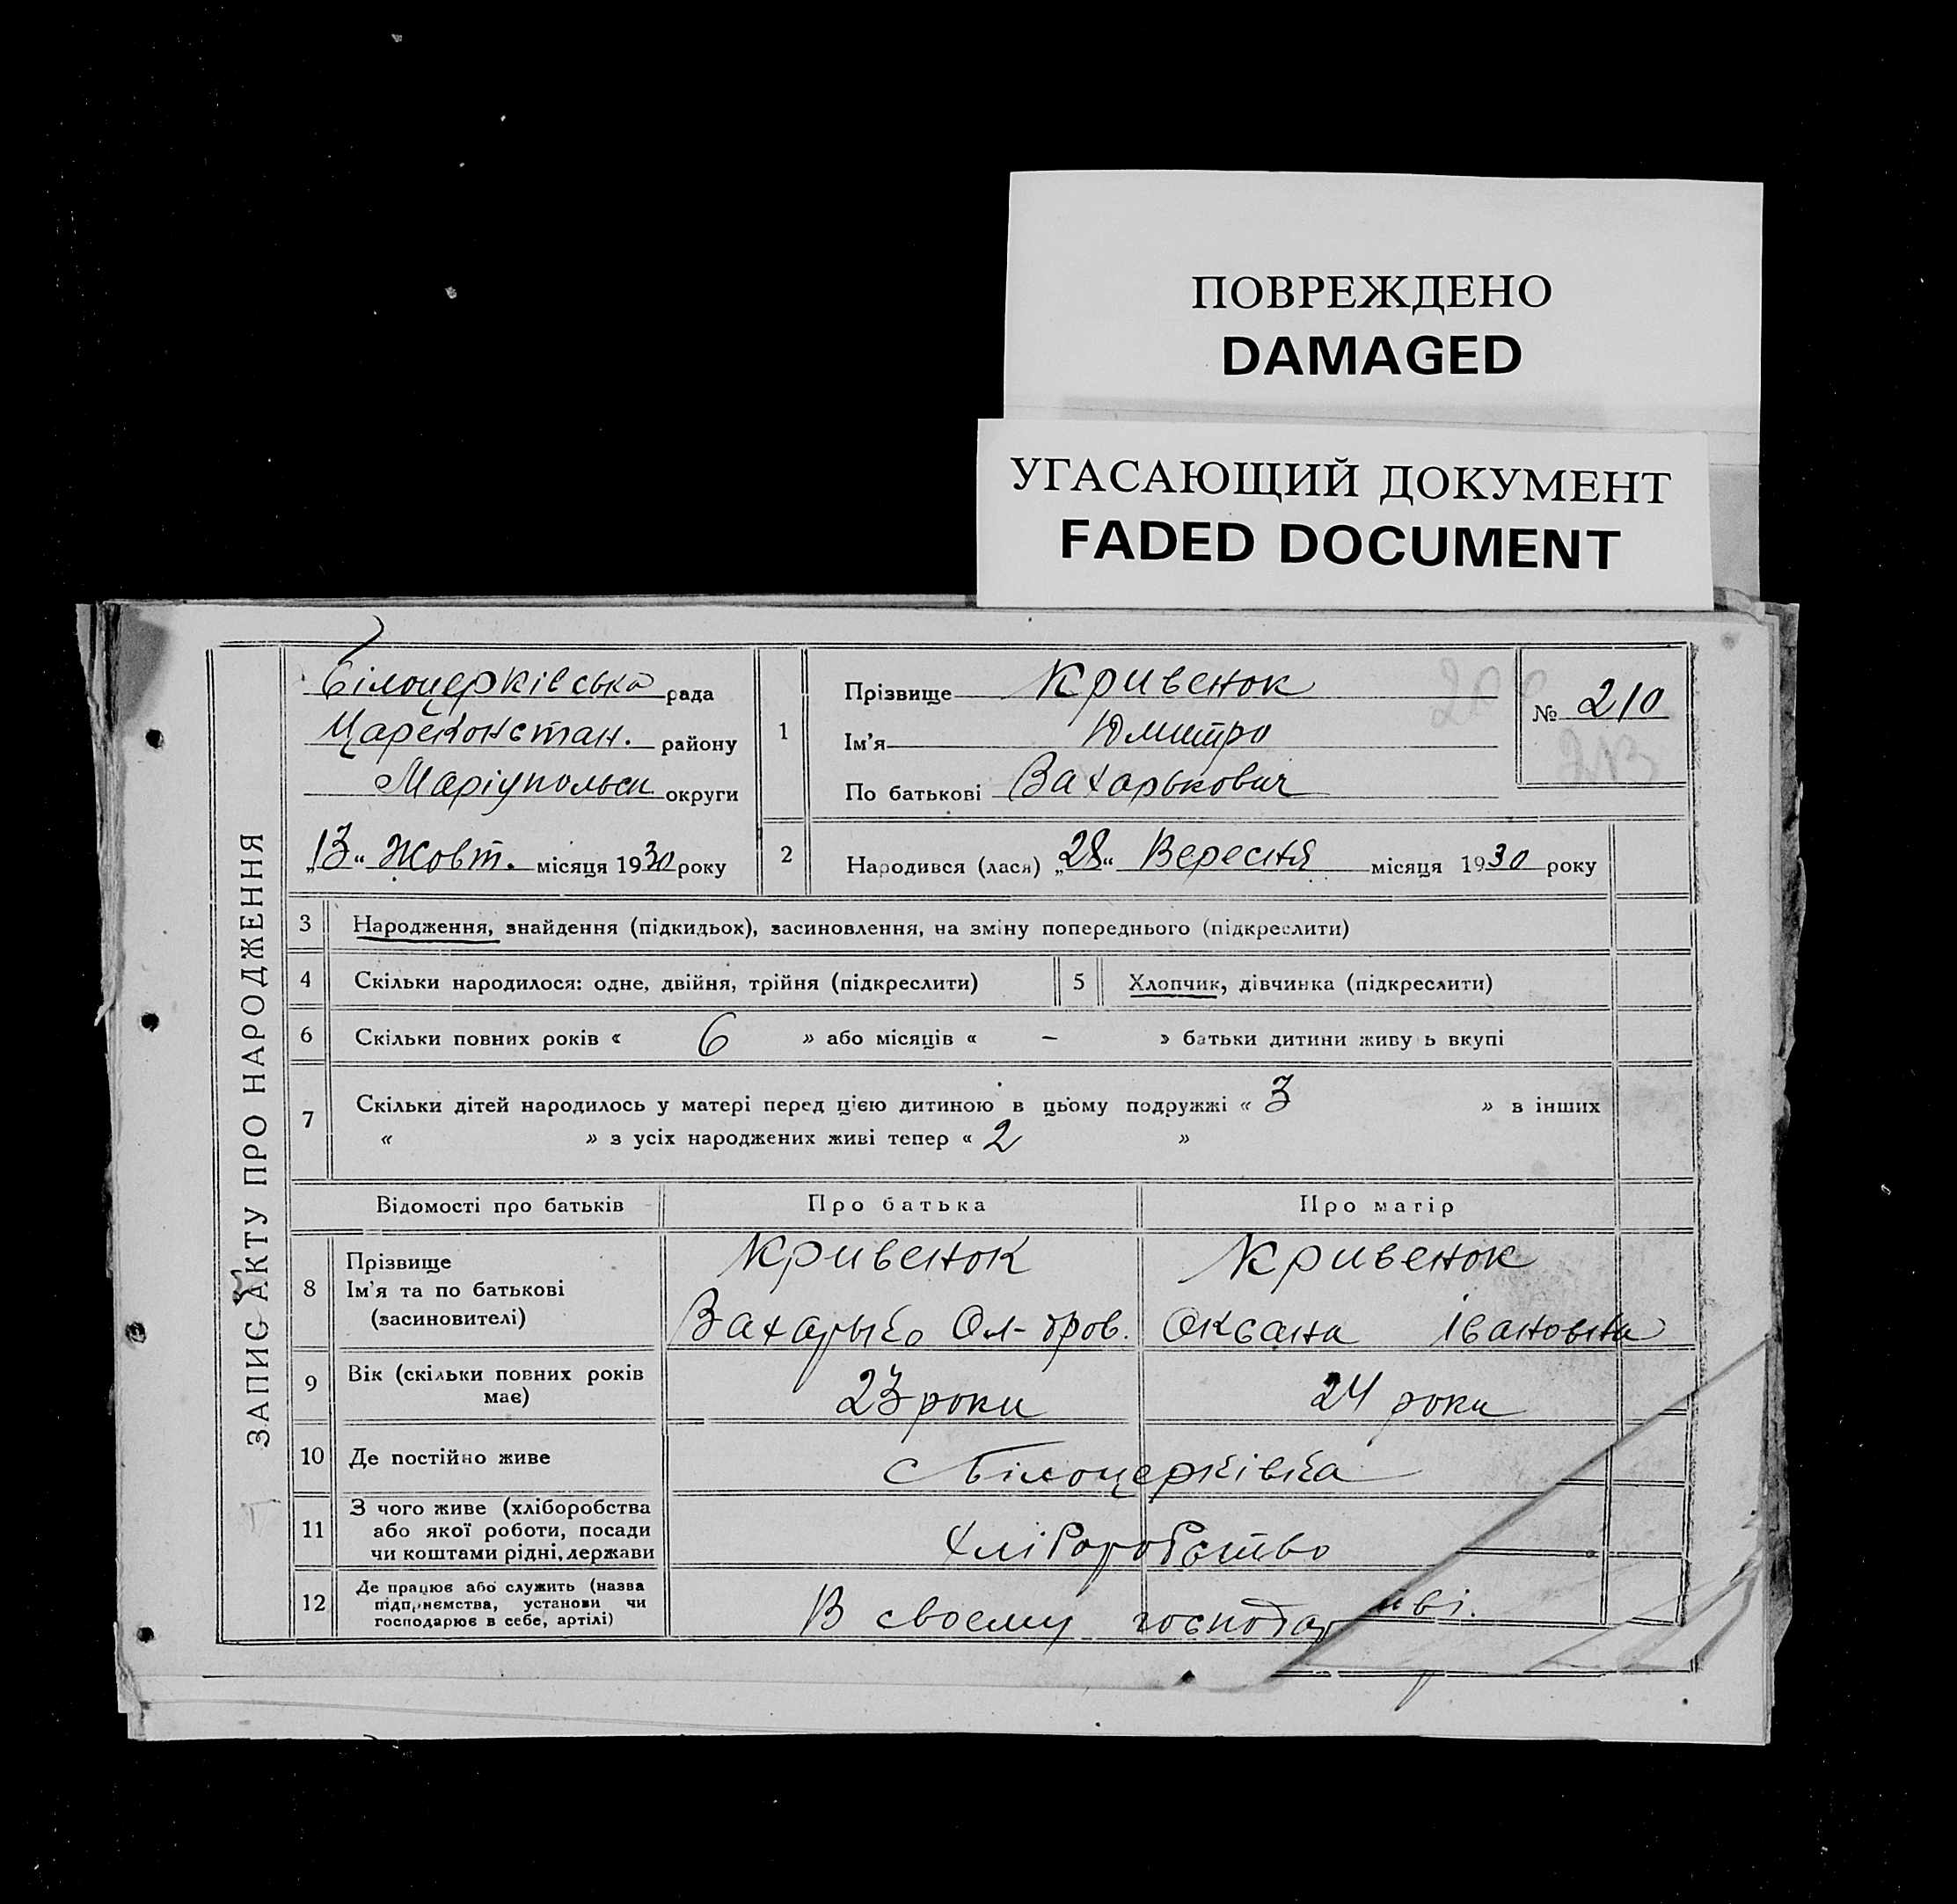 ПОВРЕЖДЕНО
DAMAGED
УГАСАЮЩИЙ ДОКУМЕНТ
FADED DOCUMENT
ЗАПИС АКТУ ПРО НАРОДЖЕННЯ
Білоцерківська рада
Цареконстан. району
Маріупольськ округи
„13“ Жовт. місяця 1930 року
1
Прізвище Кривенок
Ім'я Дмитро
По батькові Захарькович
№ 210
213
2
Народився (лася) „28“ Вересня місяця 1930 року
3 Народження, знайдення (підкидьок), засиновлення, на зміну попереднього (підкреслити)
4 Скільки народилося: одне, двійня, трійня (підкреслити)
5 Хлопчик, дівчинка (підкреслити)
6 Скільки повних років « 6 » або місяців « – » батьки дитини живу ь вкупі
7 Скільки дітей народилось у матері перед цією дитиною в цьому подружжі « 3 » в інших
« » з усіх народжених живі тепер « 2 »
Відомості про батьків Про батька Про матір
8 Прізвище
Ім'я та по батькові
(засиновителі)
Кривенок
Захарько Ол-дров.
Кривенок
Оксана Івановна
9 Вік (скільки повних років
має)
23 роки
24 роки
10 Де постійно живе
с Білоцерківка
11 З чого живе (хліборобства
або якої роботи, посади
чи коштами рідні, держави
Хліборобство
12 Де працює або служить (назва
підприємства, установи чи
господарює в себе, артілі)
В своему господар иві.